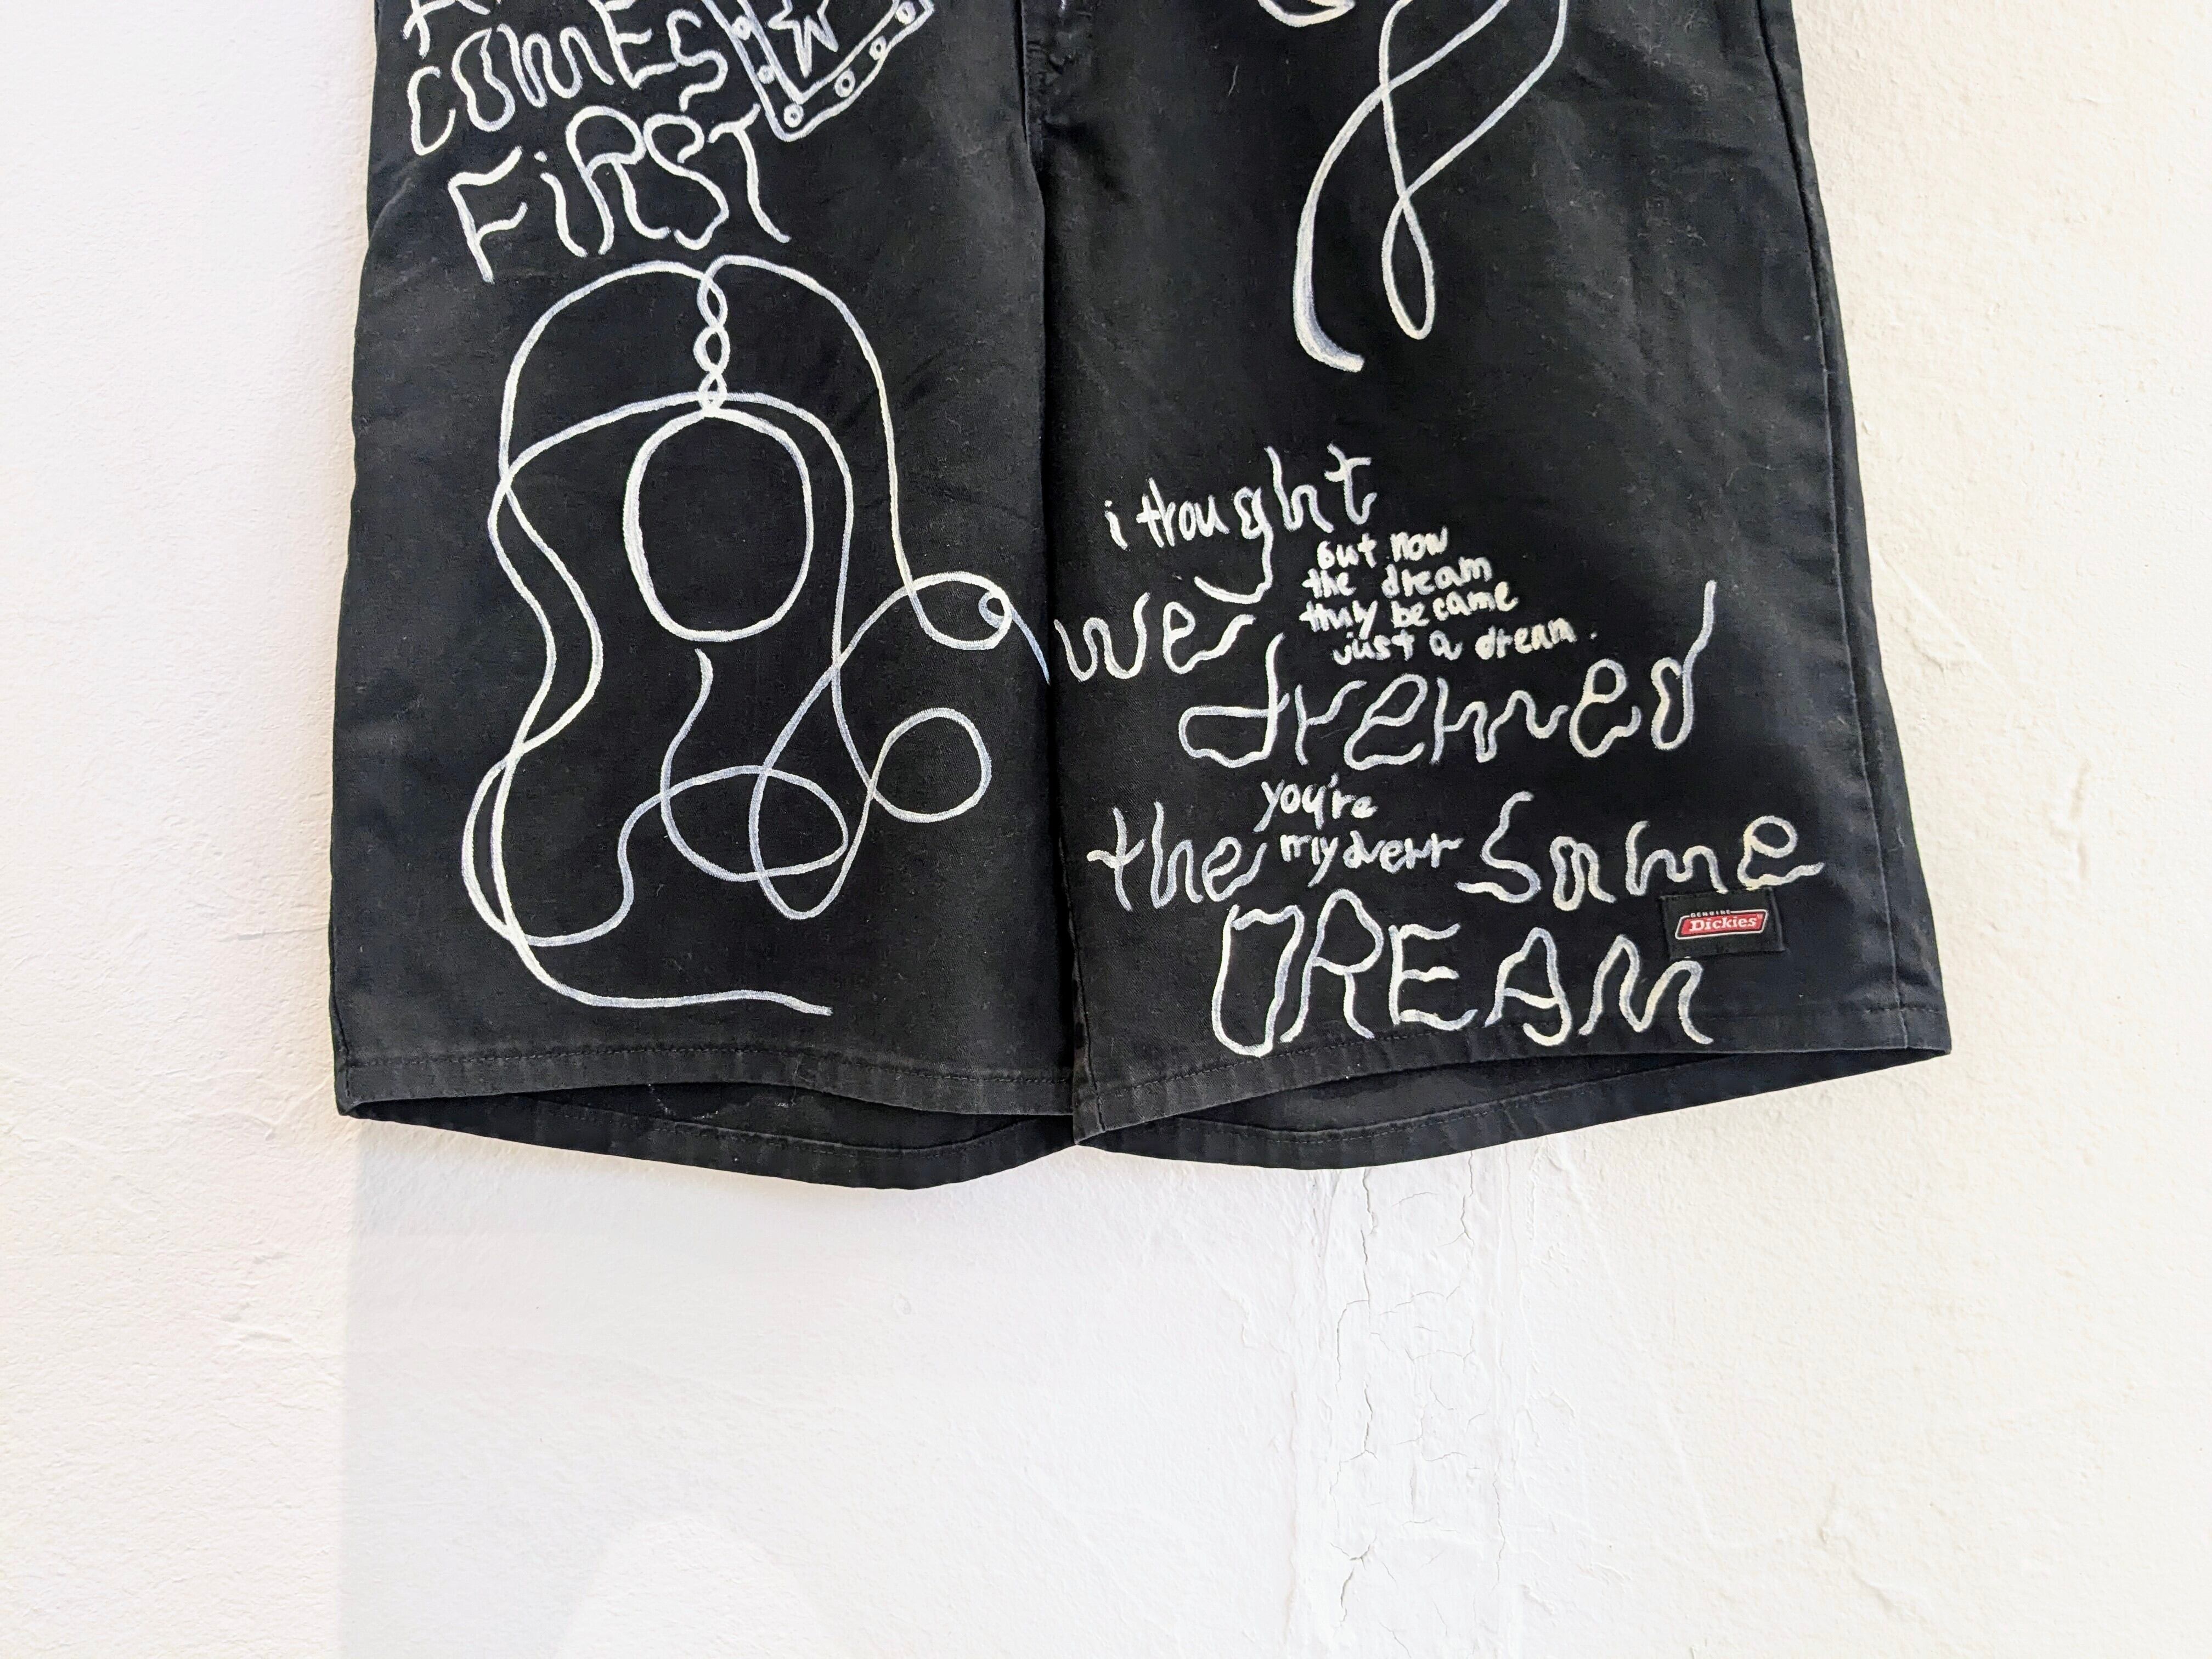 COMES
FiRST
i thought
but now
the dream
truly became
just a dream.
we
dremed
you're
my
the same
DREAM
GENUINE
Dickies